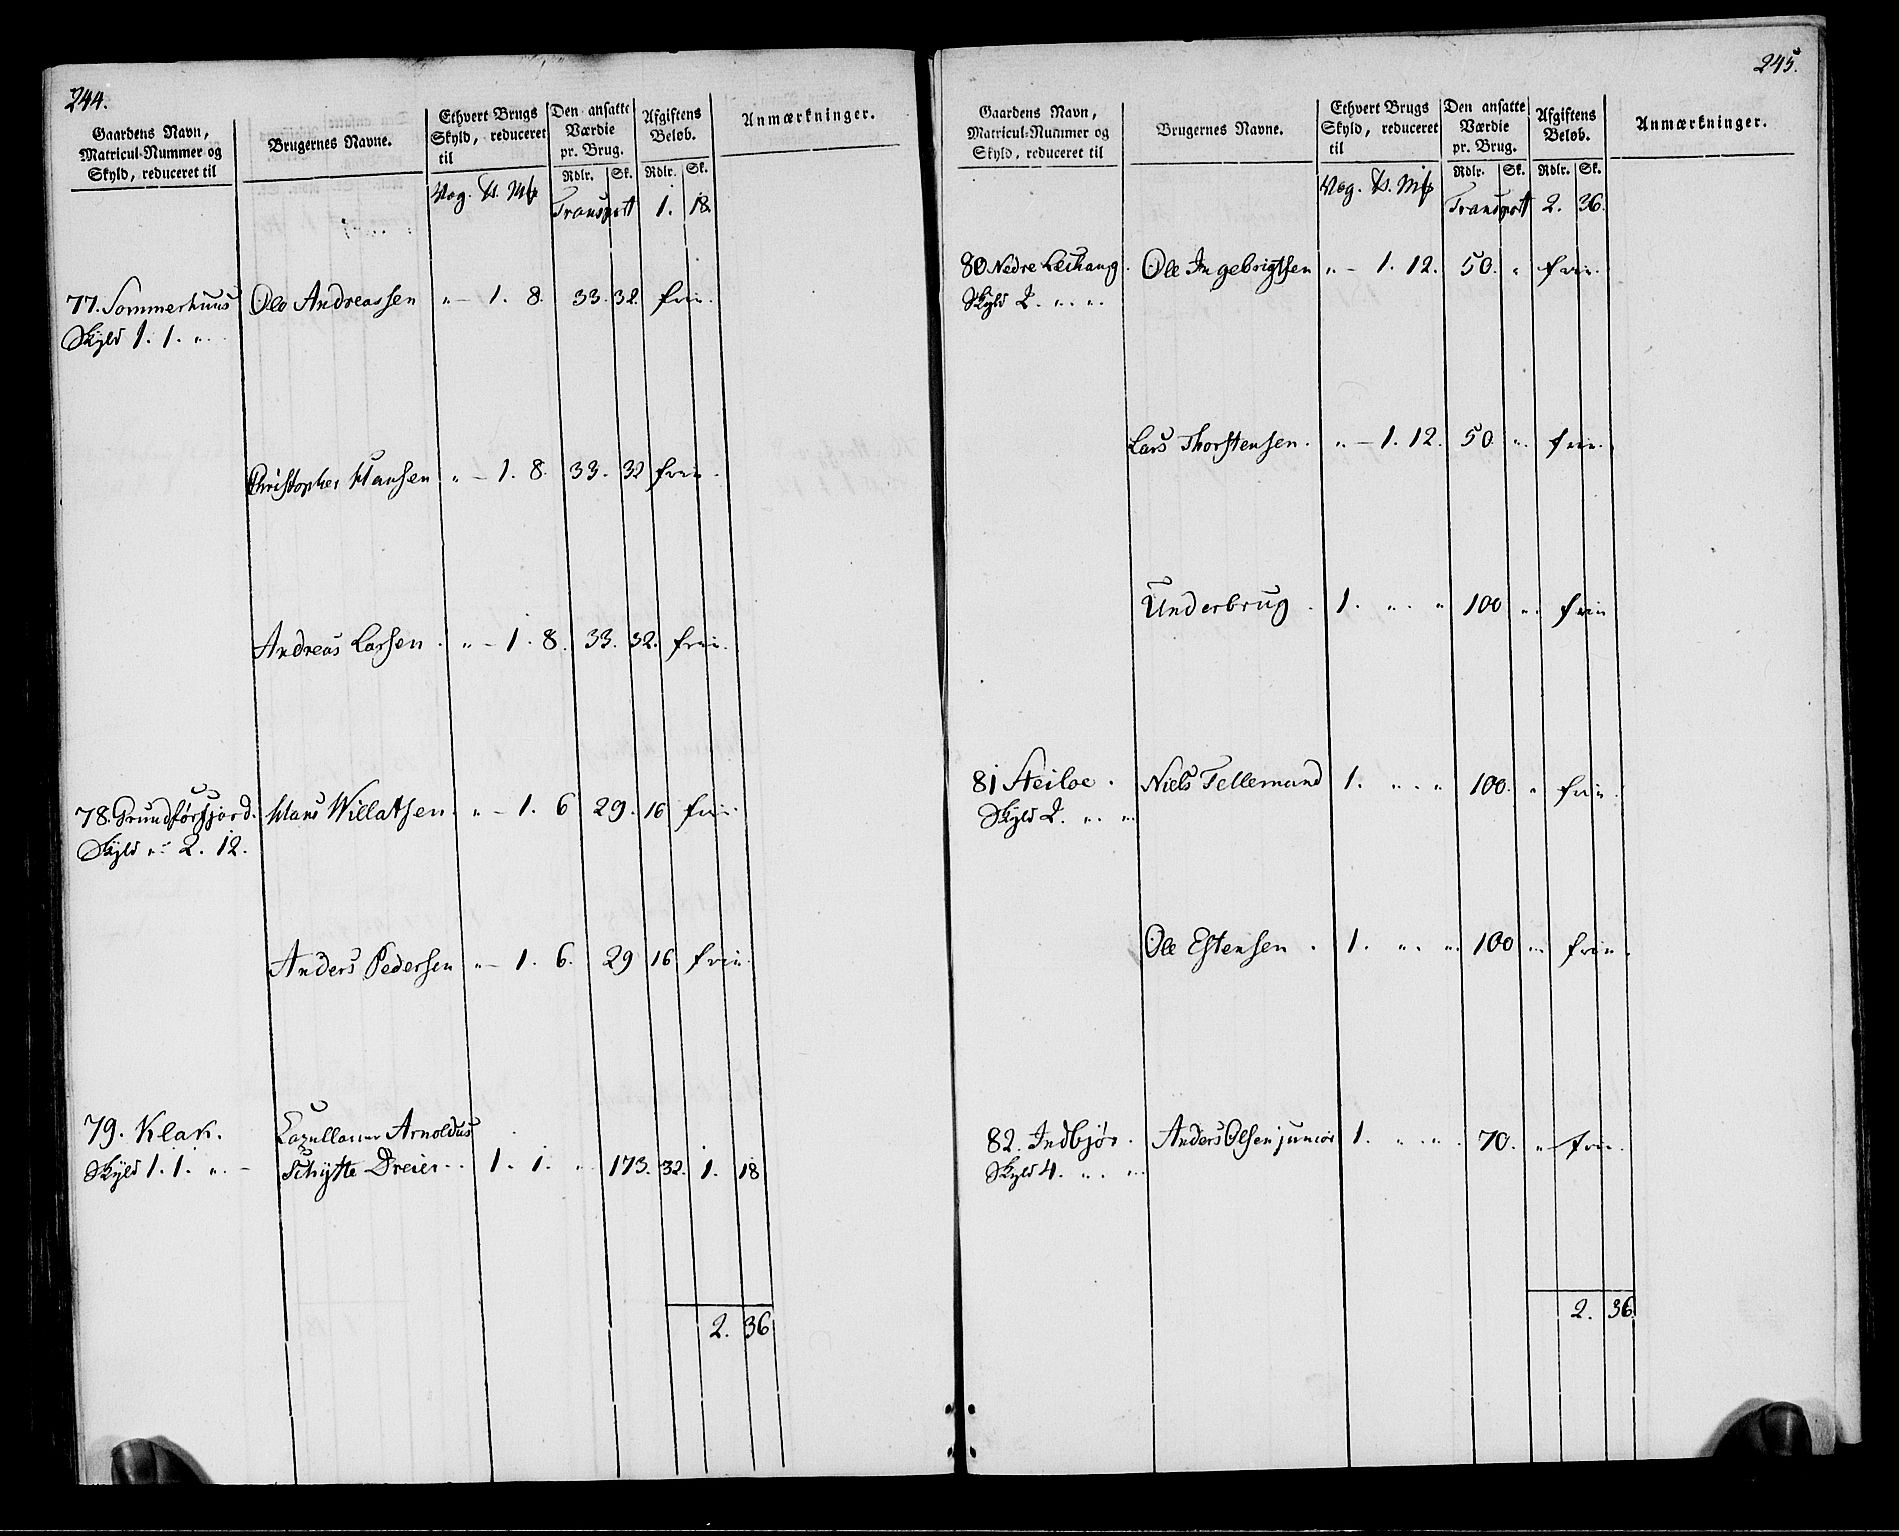 244.
Gaardens Navn, Matricul-Nummer og Skyld, reduceret til
Brugernes Navne.
Ethvert Brugs Skyld, reduceret til
Den ansatte Værdie pr. Brug.
Afgiftens Beløb.
Anmærkninger.
Rdlr. Sk. Rdlr. Sk.
Vog. Transport 1. 18.
77. Sommerhuus Ole Andreassen „ – 1. 8. 33. 32. frie.
Skyld 1. 1. „
Christopher Hansen „ – 1. 8. 33. 32 frie.
Andreas Larsen . „ – 1. 8. 33. 32. frie.
78. Grundförfjord. Hans Willatsen . „ – 1. 6 29. 16 frie
Skyld „ – 2. 12.
Anders Pedersen „ – 1. 6. 29 16 frie.
79. Klak. Arnoldus
Skyld 1. 1. „ – Schytte Dreier . . 1. 1. „ 173. 32. 1. 18
2. 36
245.
Gaardens Navn, Matricul-Nummer og Skyld, reduceret til
Brugernes Navne.
Ethvert Brugs Skyld, reduceret til
Den ansatte Værdie pr. Brug.
Afgiftens Beløb.
Anmærkninger.
Rdlr. Sk. Rdlr. Sk.
Vog. Transport 2. 36.
80 Nedre Ole Ingebrigtsen „ – 1. 12. 50. „ frie.
Skyld 2. „ . „ .
Lars Thorstensen . „ – 1. 12. 50. „ . frie.
Underbrug . 1. „ . „ 100 „ . frie
81 Heiloe . Niels Tellemand 1. „ . „ 100. „ frie.
Skyld 2. „ . „ .
Ole Estensen . 1. „ . „ . 100 „ . frie.
82. Indbjör . Anders Olsen junior 1. „ . „ . 70. „ frie.
Skyld 4. „ . „ .
2. 36